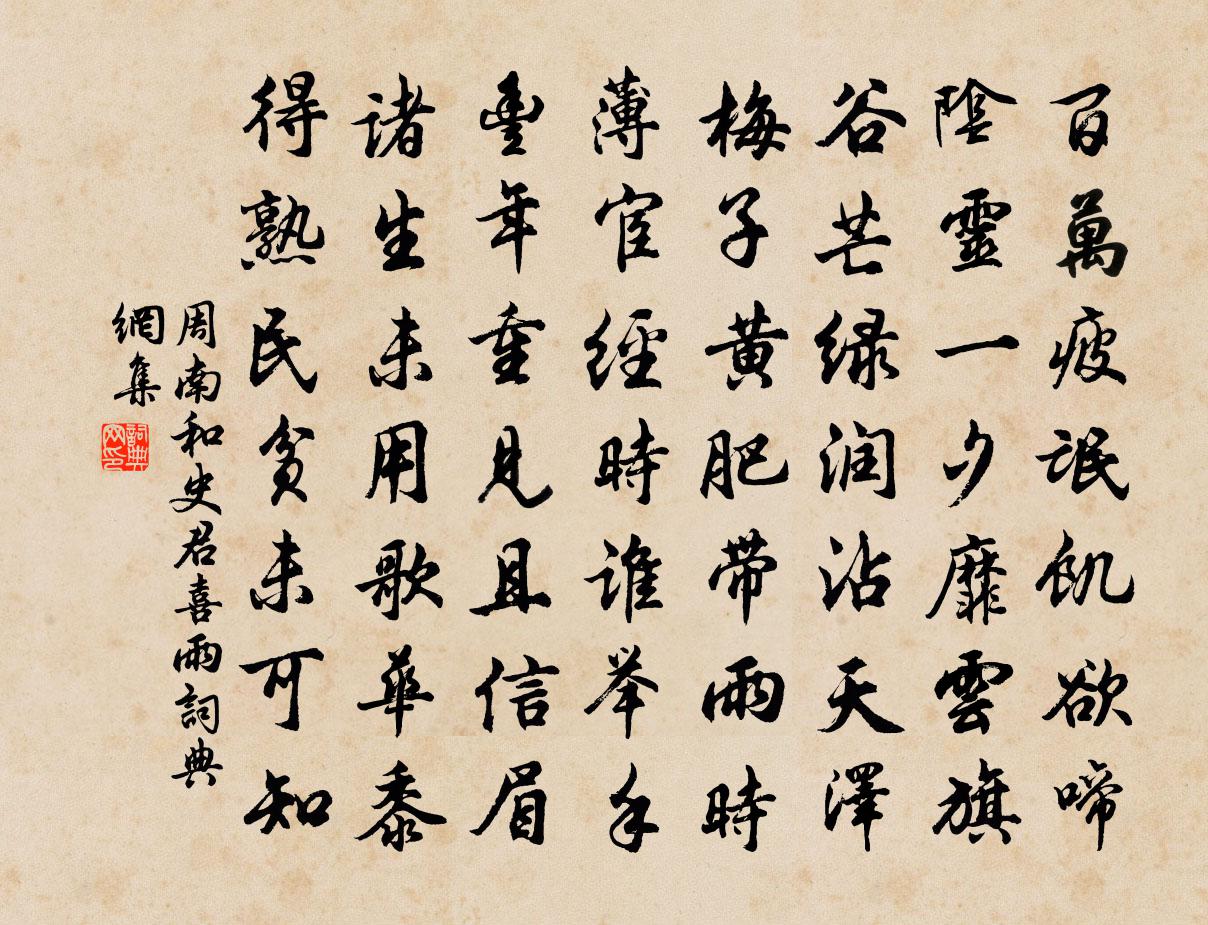 百萬疲氓飢欲啼
陰靈一夕靡雲旗
谷芒绿润沾天澤
梅子黄肥带雨時
薄宦經時誰举手
豊年重見且信眉
諸生未用歌華黍
得熟民贫未可知
周南和史君喜雨詞典
網集
詞典
网印